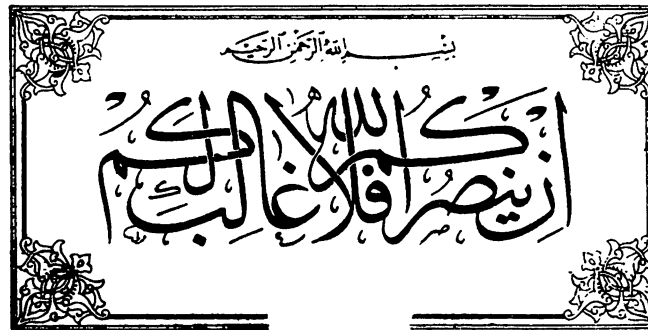 بِسْمِ اللهِ الرَّحْمٰنِ الرَّحِيْمِ
اِنْ يَنْصُرْكُمُ اللهُ فَلَا غَالِبَ لَكُمْ